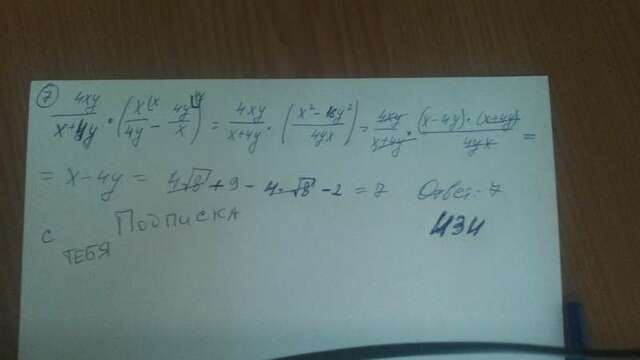 ⑦ 4xy/(x+4y) · (x/4y − 4y/x) = 4xy/(x+4y) · ((x²−16y²)/4yx) = 4xy/(x+4y) · (x−4y)·(x+4y)/4yx =
= x−4y = 4√8 + 9 − 4·√8 − 2 = 7 Ответ: 7
с ПОДПИСКА
ТЕБЯ